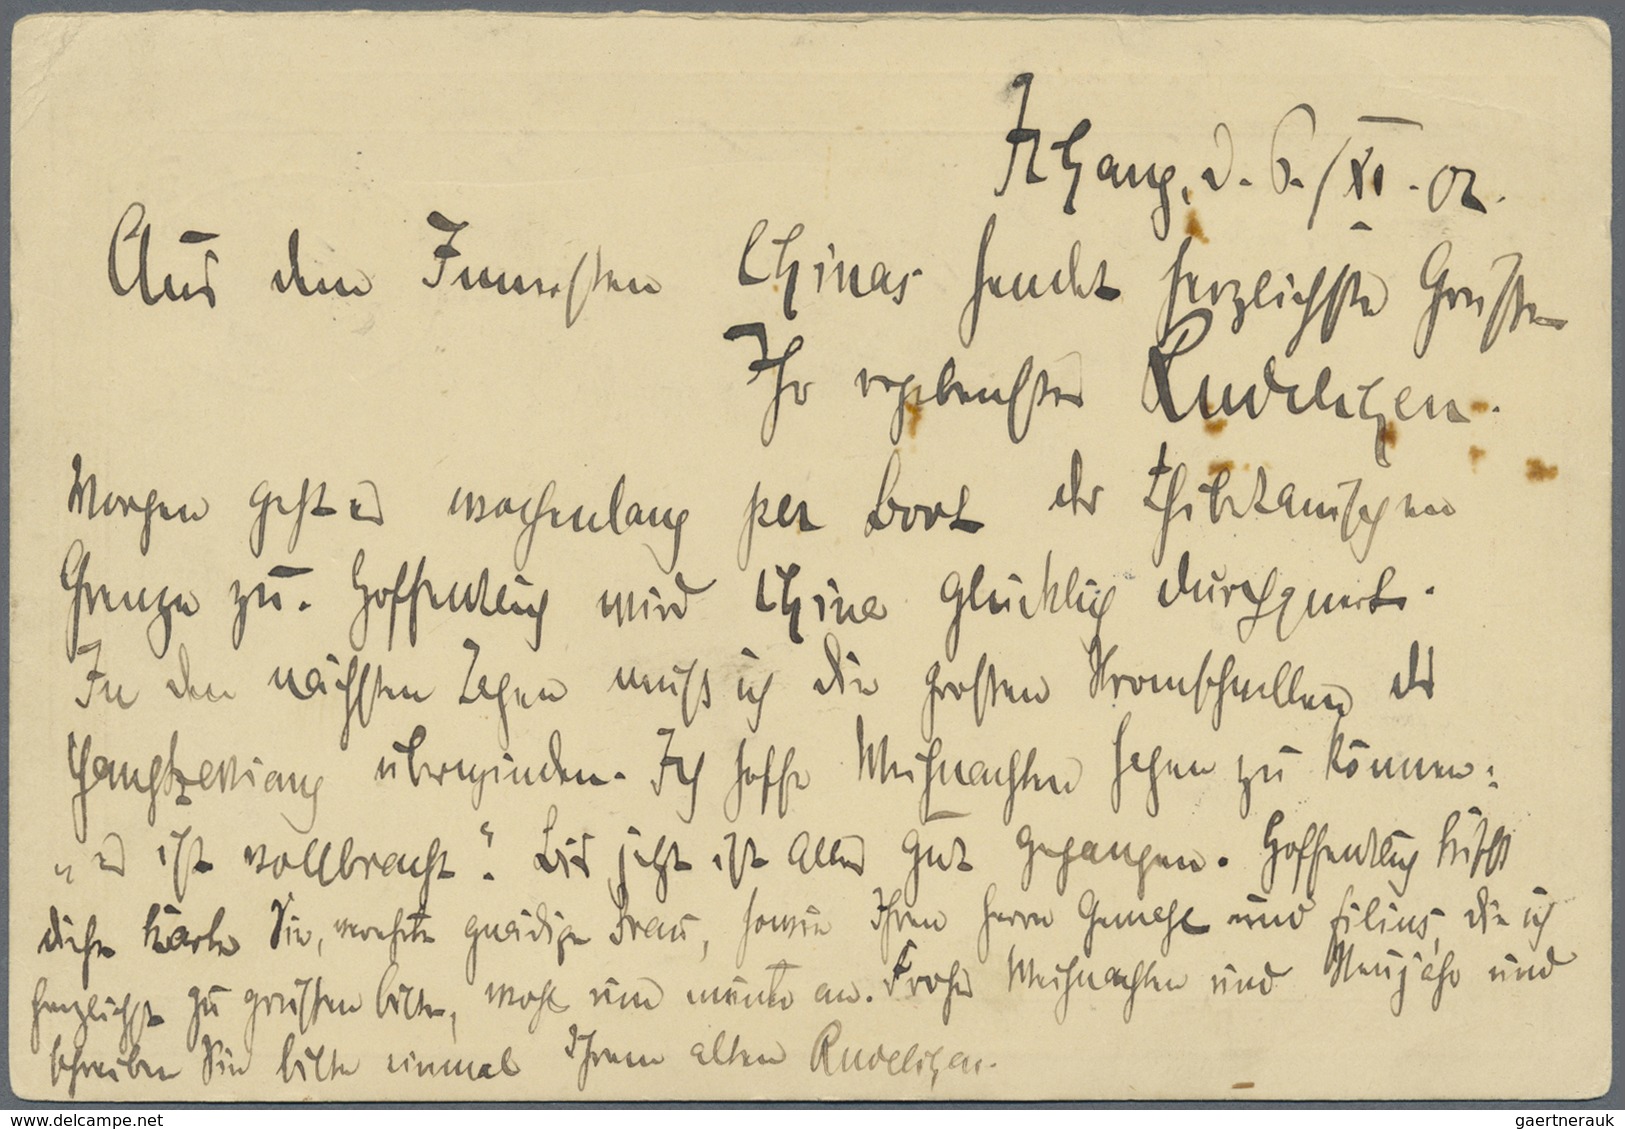 Ichang, d. 6./XI.02.
Aus dem Innersten Chinas sendet herzlichste Grüsse
Ihr ergebenster Rudelitzen.
Morgen geht es wochenlang per Boot der thibetanischen
Grenze zu. Hoffentlich wird China glücklich durchquert.
In den nächsten Tagen muß ich die großen Stromschnellen des
Yangtzekiang überwinden. Ich hoffe Weihnachten sagen zu können:
„es ist vollbracht“. Bis jetzt ist alles gut gegangen. Hoffentlich trifft
diese Karte Sie, verehrte gnädige Frau, sowie Ihren Herrn Gemahl und filius, die ich
herzlichst zu grüssen bitte, wohl und munter an. Frohe Weihnachten und Neujahr und
schreiben Sie bitte einmal Ihrem alten Rudelitzen.
© www.delcampe.net
gaertnerauk